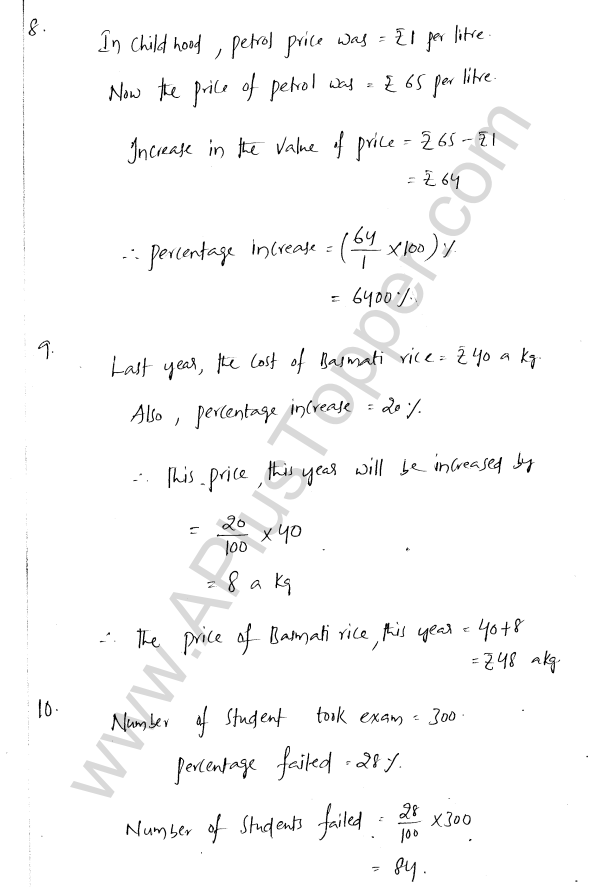 8.
In Childhood, petrol price was = ₹1 per litre.
Now the price of petrol was = ₹ 65 per litre.
Increase in the value of price = ₹65 - ₹1
= ₹64
∴ percentage increase = (64/1 × 100) %
= 6400%
9.
Last year, the cost of Basmati rice = ₹40 a kg.
Also, percentage increase = 20%.
∴ This price, this year will be increased by
= 20/100 × 40
= 8 a kg
∴ the price of Basmati rice, this year = 40+8
= ₹48 a kg.
10.
Number of Student took exam = 300.
percentage failed = 28%.
Number of Students failed = 28/100 × 300
= 84.
www.APlusTopper.com